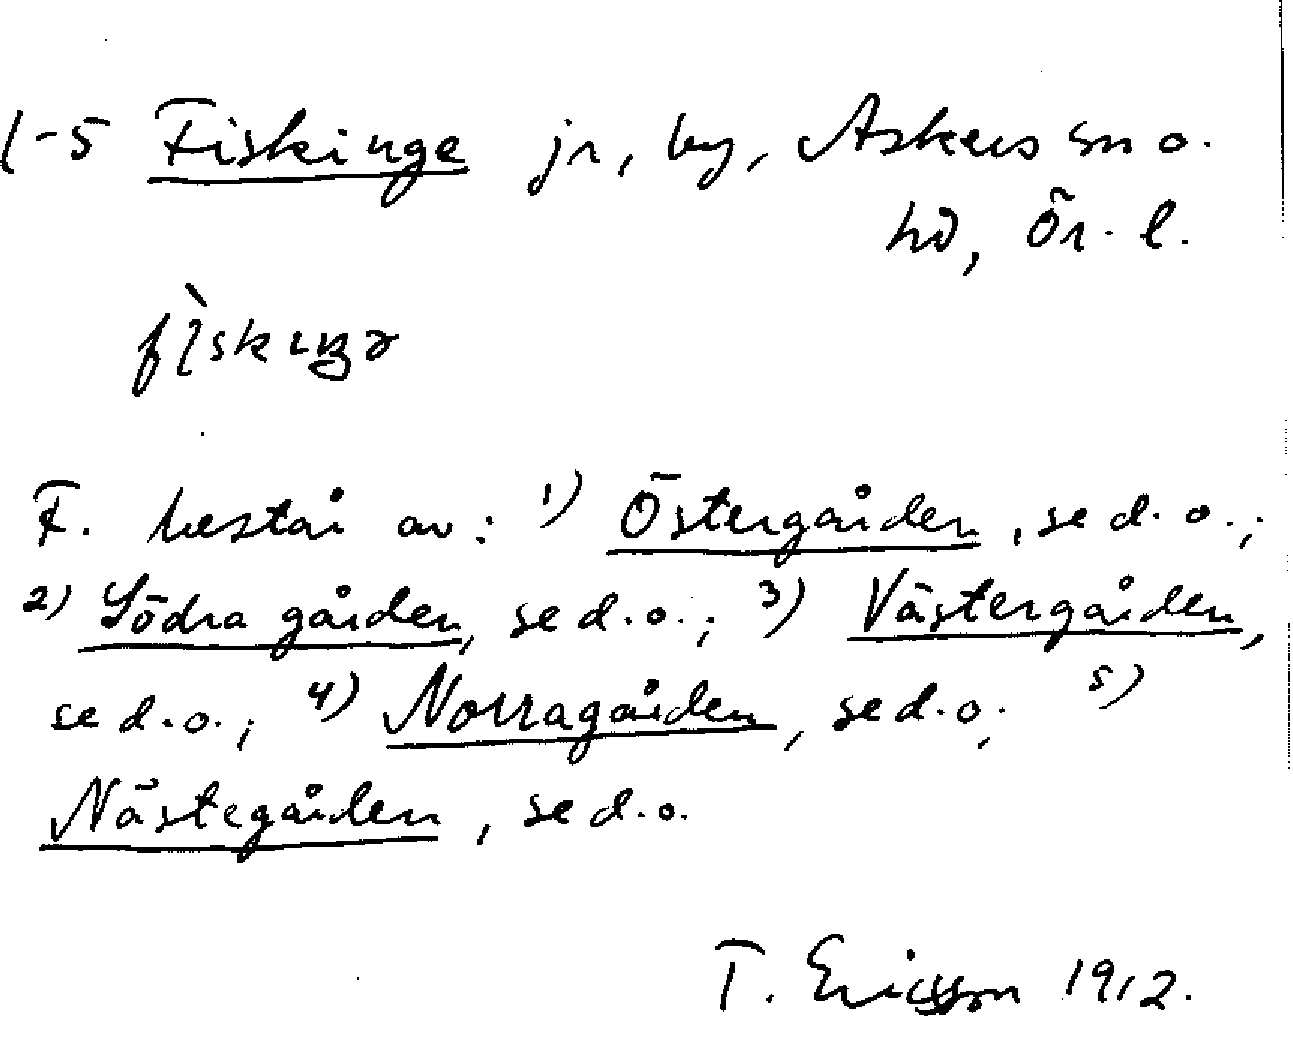 1-5 Fiskinge jr, by, Askers sn o.
hd, Ör. l.
F. består av: 1) Östergården, se d. o.;
2) Södra gården, se d.o.; 3) Västergården,
se d.o.; 4) Norragården, se d.o; 5)
Nästegården, se d.o.
T. Ericsson 1912.